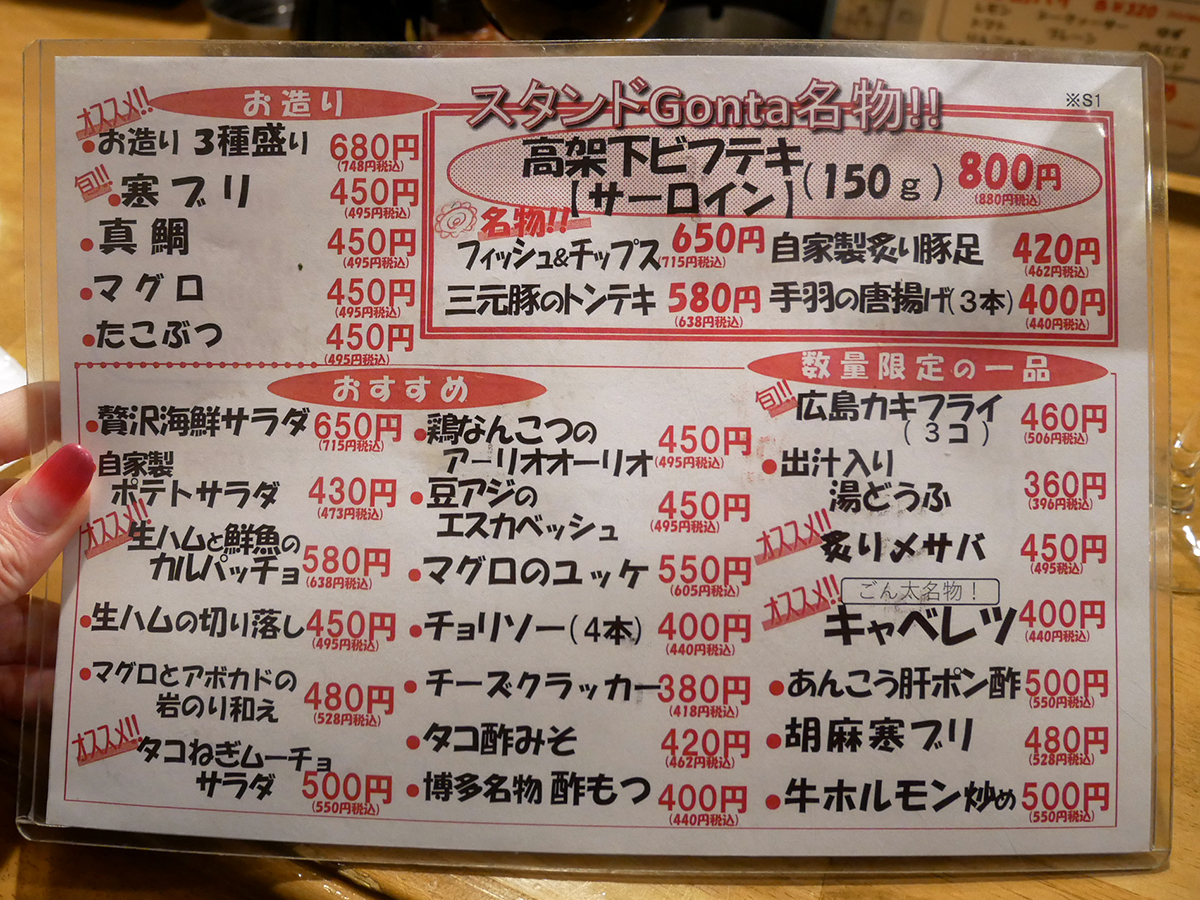 オススメ!!
お造り
•お造り 3種盛り 680円
(748円税込)
旬!!
•寒ブリ 450円
(495円税込)
•真鯛 450円
(495円税込)
•マグロ 450円
(495円税込)
•たこぶつ 450円
(495円税込)
スタンドGonta名物!!
※S1
高架下ビフテキ
【サーロイン】(150g) 800円
(880円税込)
名物!!
フィッシュ&チップス 650円
(715円税込)
自家製炙り豚足 420円
(462円税込)
三元豚のトンテキ 580円
(638円税込)
手羽の唐揚げ(3本) 400円
(440円税込)
おすすめ
•贅沢海鮮サラダ 650円
(715円税込)
•自家製
ポテトサラダ 430円
(473円税込)
オススメ!!
生ハムと鮮魚の
カルパッチョ 580円
(638円税込)
•生ハムの切り落し 450円
(495円税込)
•マグロとアボカドの
岩のり和え 480円
(528円税込)
オススメ!!
タコねぎムーチョ
サラダ 500円
(550円税込)
•鶏なんこつの
アーリオオーリオ 450円
(495円税込)
•豆アジの
エスカベッシュ 450円
(495円税込)
•マグロのユッケ 550円
(605円税込)
•チョリソー(4本) 400円
(440円税込)
•チーズクラッカー 380円
(418円税込)
•タコ酢みそ 420円
(462円税込)
•博多名物 酢もつ 400円
(440円税込)
数量限定の一品
旬!!
広島カキフライ 460円
(3コ) (506円税込)
•出汁入り
湯どうふ 360円
(396円税込)
オススメ!!
炙りメサバ 450円
(495円税込)
オススメ!!
ごん太名物!
キャベレツ 400円
(440円税込)
•あんこう肝ポン酢 500円
(550円税込)
•胡麻寒ブリ 480円
(528円税込)
•牛ホルモン炒め 500円
(550円税込)
レモン
トマト
プレーン